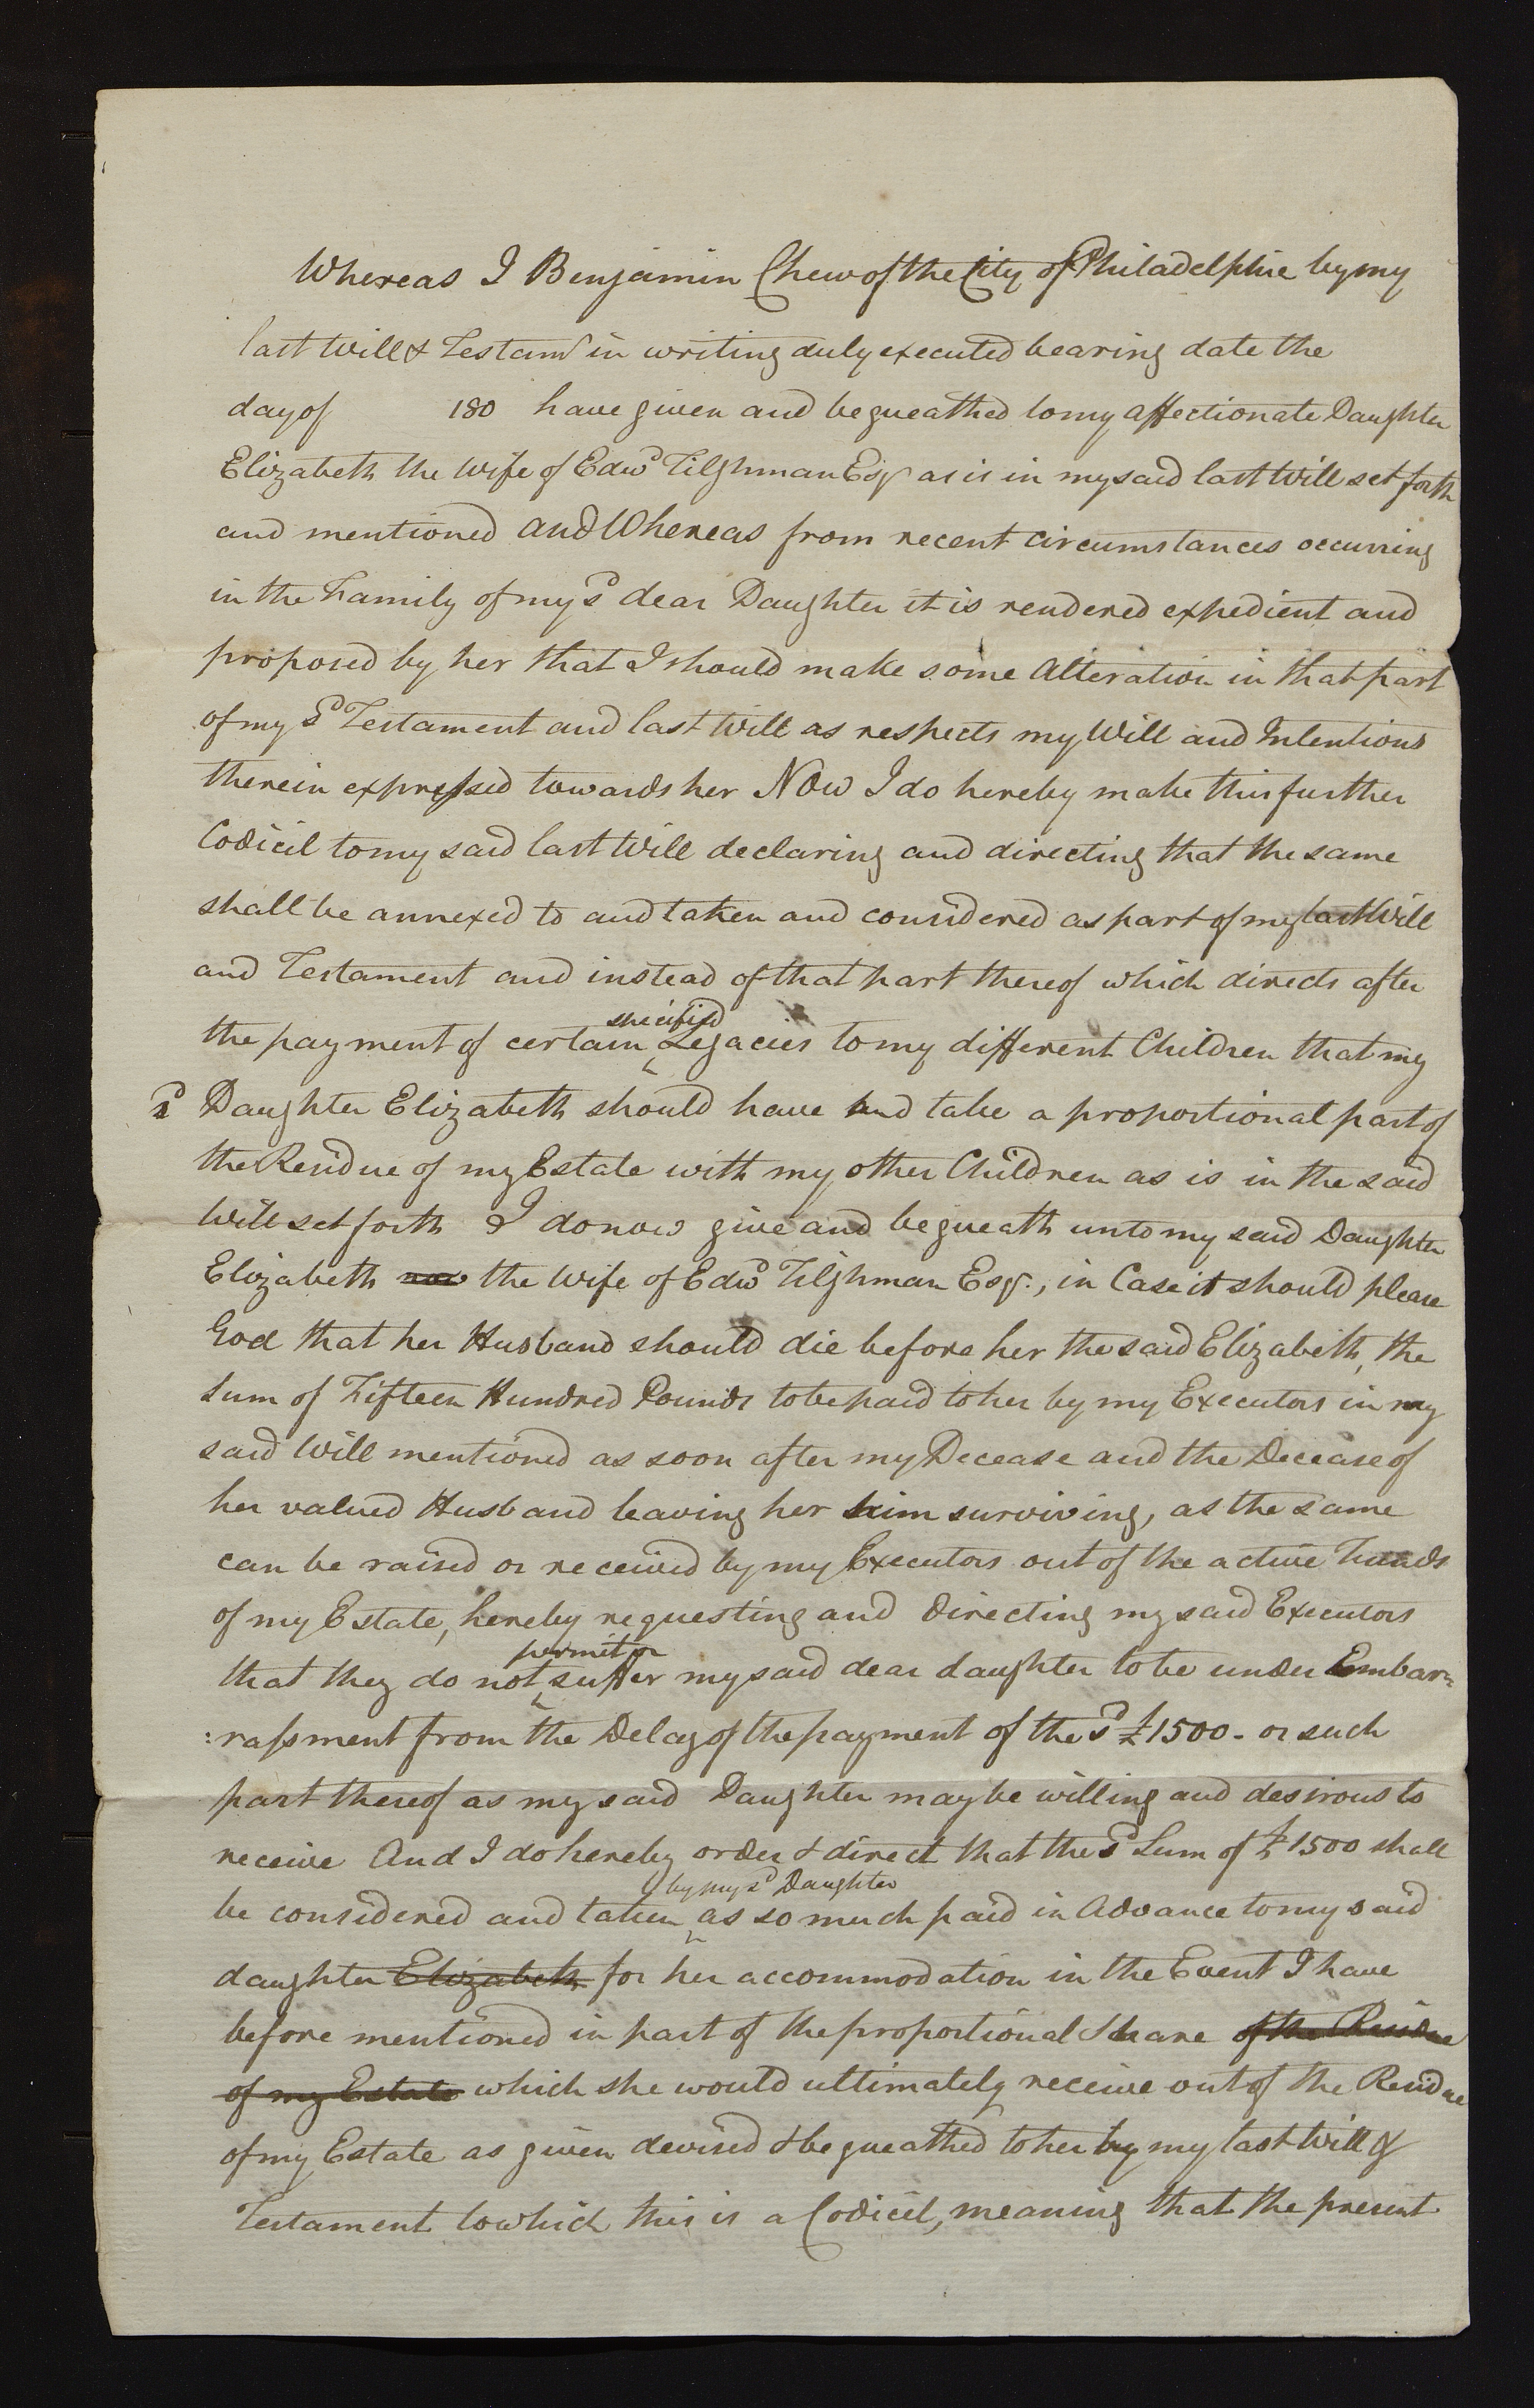 Whereas I Benjamin Chew of the City of Philadelphie by my
last Will & Testamt in writing duly executed bearing date the
day of 180 have given and bequeathed to my affectionate Daughter
Elizabeth the Wife of Edwd Tilghman Esqr as is in my said last Will set forth
and mentioned and Whereas from recent circumstances occurring
in the Family of my sd dear Daughter it is rendered expedient and
proposed by her that I should make some Alteration in that part
of my sd Testament and last Will as respects my Will and Intentions
therein expressed towards her Now I do hereby make this further
Codicil to my said last Will declaring and directing that the same
shall be annexed to and taken and considered as part of my last Will
and Testament and instead of that part thereof which directs after
specified
the payment of certain Legacies to my different Children that my
sd Daughter Elizabeth should have and take a proportional part of
the Residue of my Estate with my other Children as is in the said
Will set forth I do now give and bequeath unto my said Daughter
Elizabeth now the Wife of Edwd Tilghman Esqr., in Case it should please
God that her Husband should die before her the said Elizabeth, the
Sum of Fifteen Hundred Pounds to be paid to her by my Executors in my
said Will mentioned as soon after my Decease and the Decease of
her valued Husband leaving her him surviving, as the same
can be raised or received by my Executors out of the active Funds
of my Estate, hereby requesting and directing my said Executors
permit or
that they do not suffer my said dear daughter to be under Embar=
:rassment from the Delay of the payment of the sd £1500 - or such
part thereof as my said Daughter may be willing and desirous to
receive And I do hereby order & direct that the sd Sum of £1500 shall
by my sd Daughter
be considered and taken as so much paid in Advance to my said
daughter Elizabeth for her accommodation in the Event I have
before mentioned in part of the proportional Share of the Residue
of my Estate which she would ultimately receive out of the Residue
of my Estate as given devised & bequeathed to her by my last Will &
Testament to which this is a Codicil, meaning that the present